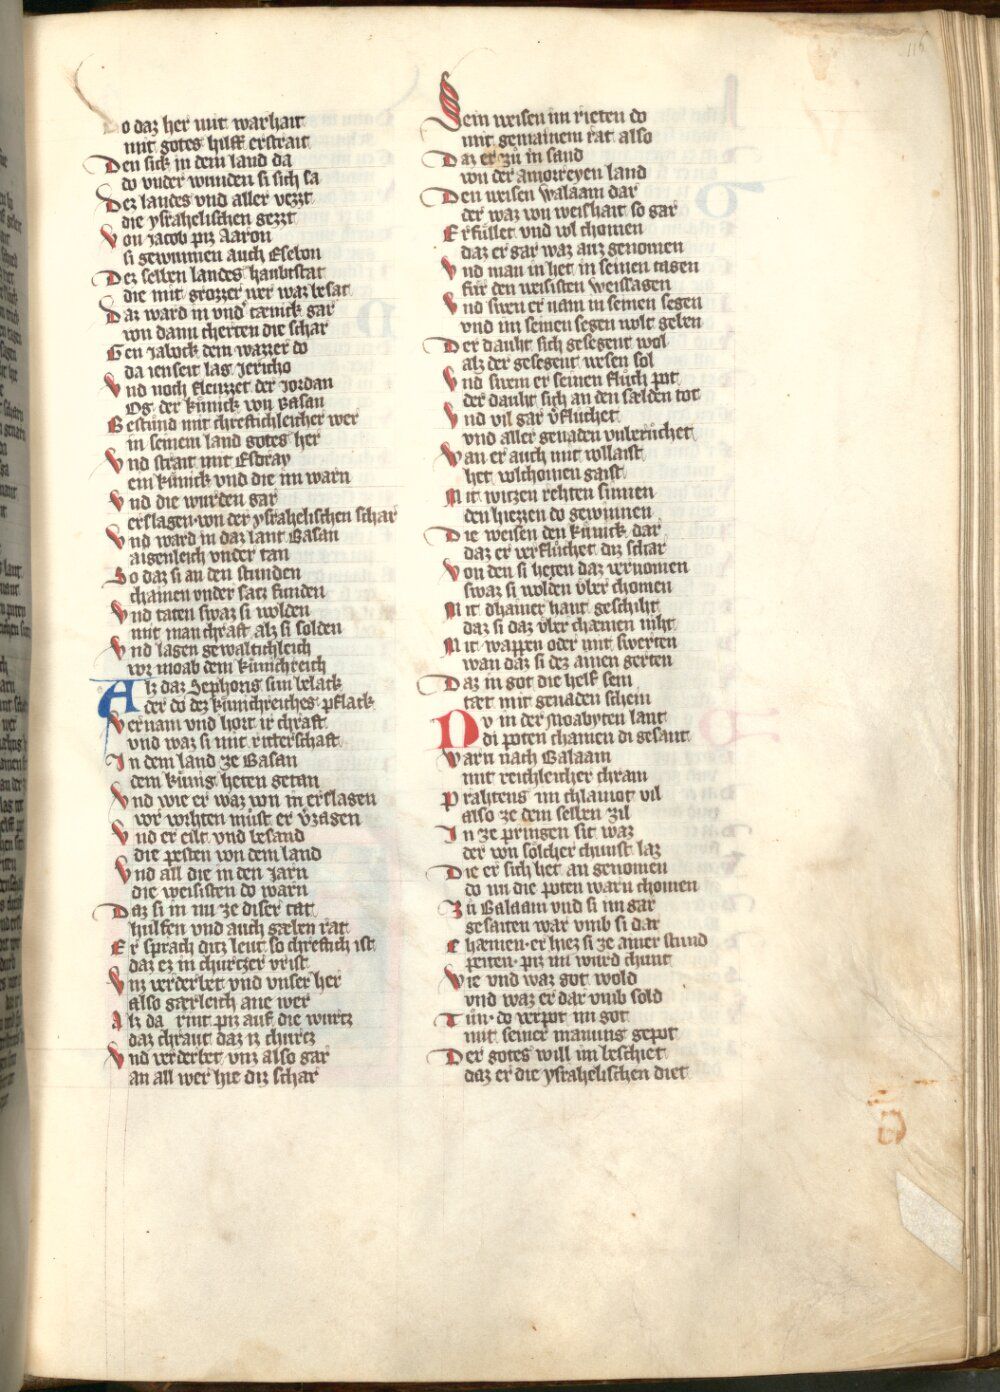 Do daz her mit warhait
mit gotes hilff erstrait
Den sick in dem land da
do vnder wunden si sich sa
Dez landes vnd aller vezzt
die ysrahelischen gezzt
Von Jacob piz Aaron
si gewunnen auch Esebon
Dez selben landes haubtstat
die mit grozzer wer waz besat
Daz ward in vnd tænick gar
von dann cherten die schar
Gen Jabock dem wazzer do
da ienseit lag Jericho
Vnd noch fleuzzet der Jordan
Og der kunick von Basan
Bestund mit chreftichleicher wer
in seinem land gotes her
Vnd strait mit Esdray
ein kunick vnd die im warn
Vnd die wurden gar
erslagen von der ysrahelischen schar
Vnd ward in daz lant Basan
aigenleich vnder tan
So daz si an den stunden
chainen vnder satz funden
Vnd taten swaz si wolden
mit man chraft alz si solden
Vnd lagen gewaltichleich
vor moab dem kunichreich
Alz daz Sephoris sun belack
der do dez kunichreiches pflack
Vernam vnd hort ir chraft
vnd waz si mit ritterschaft
In dem land ze Basan
dem kunig heten getan
Vnd wie er waz von in erslagen
vor vorhten must er verzagen
Vnd er eilt vnd besand
die pesten von dem land
Vnd all die in den Jarn
die weisisten do warn
Daz si in nu ze diser tat
hulfen vnd auch gæben rat
Er sprach ditz leut so chreftich ist
daz ez in churtzer vrist
Vnz verderbet vnd vnser her
also gærleich ane wer
Alz da rint piz auf die wurtz
daz chraut daz iz churtz
Vnd verderbet vnz also gar
an all wer hie diz schar
Sein weisen im rieten do
mit gemainem rat also
Daz er zu in sand
von der amorreyen land
Den weisen Walaam dar
der waz von weishait so gar
Erfullet vnd vol chomen
daz er gar waz auz genomen
Vnd man in het in seinen tagen
fur den weisisten weissagen
Vnd swen er nam in seinen segen
vnd im seinen segen wolt geben
Der dauht sich gesegent wol
alz der gesegent wesen sol
Vnd swem er seinen fluch pot
der dauht sich an den sælden tot
Vnd vil gar verfluchet
vnd aller genaden vnberuchet
Wan er auch mit vollaist
het volchomen gaist
Mit witzen rehten sinnen
den hiezzen do gewinnen
Die weisen den kunick dar
daz er verfluchet diz schar
Von den si heten daz vernomen
swaz si wolden vber chomen
Mit dhainer hant geschiht
daz si daz vber chæmen niht
Mit wappen oder mit swerten
wan daz si dez ainen gerten
Daz in got die helf sein
tæt mit genaden schein
Dv in der Moabyten lant
di poten chamen di gesant
Warn nach Balaam
mit reichleicher chram
Prahtens im chlainot vil
also ze dem selben zil
In ze pringen sit waz
der von solcher chunst laz
Die er sich het an genomen
do nu die poten warn chomen
Zu Balaam vnd si im gar
gesaiten war vmb si dar
Chæmen er hiez si ze ainer stund
peiten piz im wurd chunt
Wie vnd waz got wold
vnd waz er dar vmb sold
Tun do verpot im got
mit seiner manung gepot
Der gotes will im beschiet
daz er die ysrahelischen diet